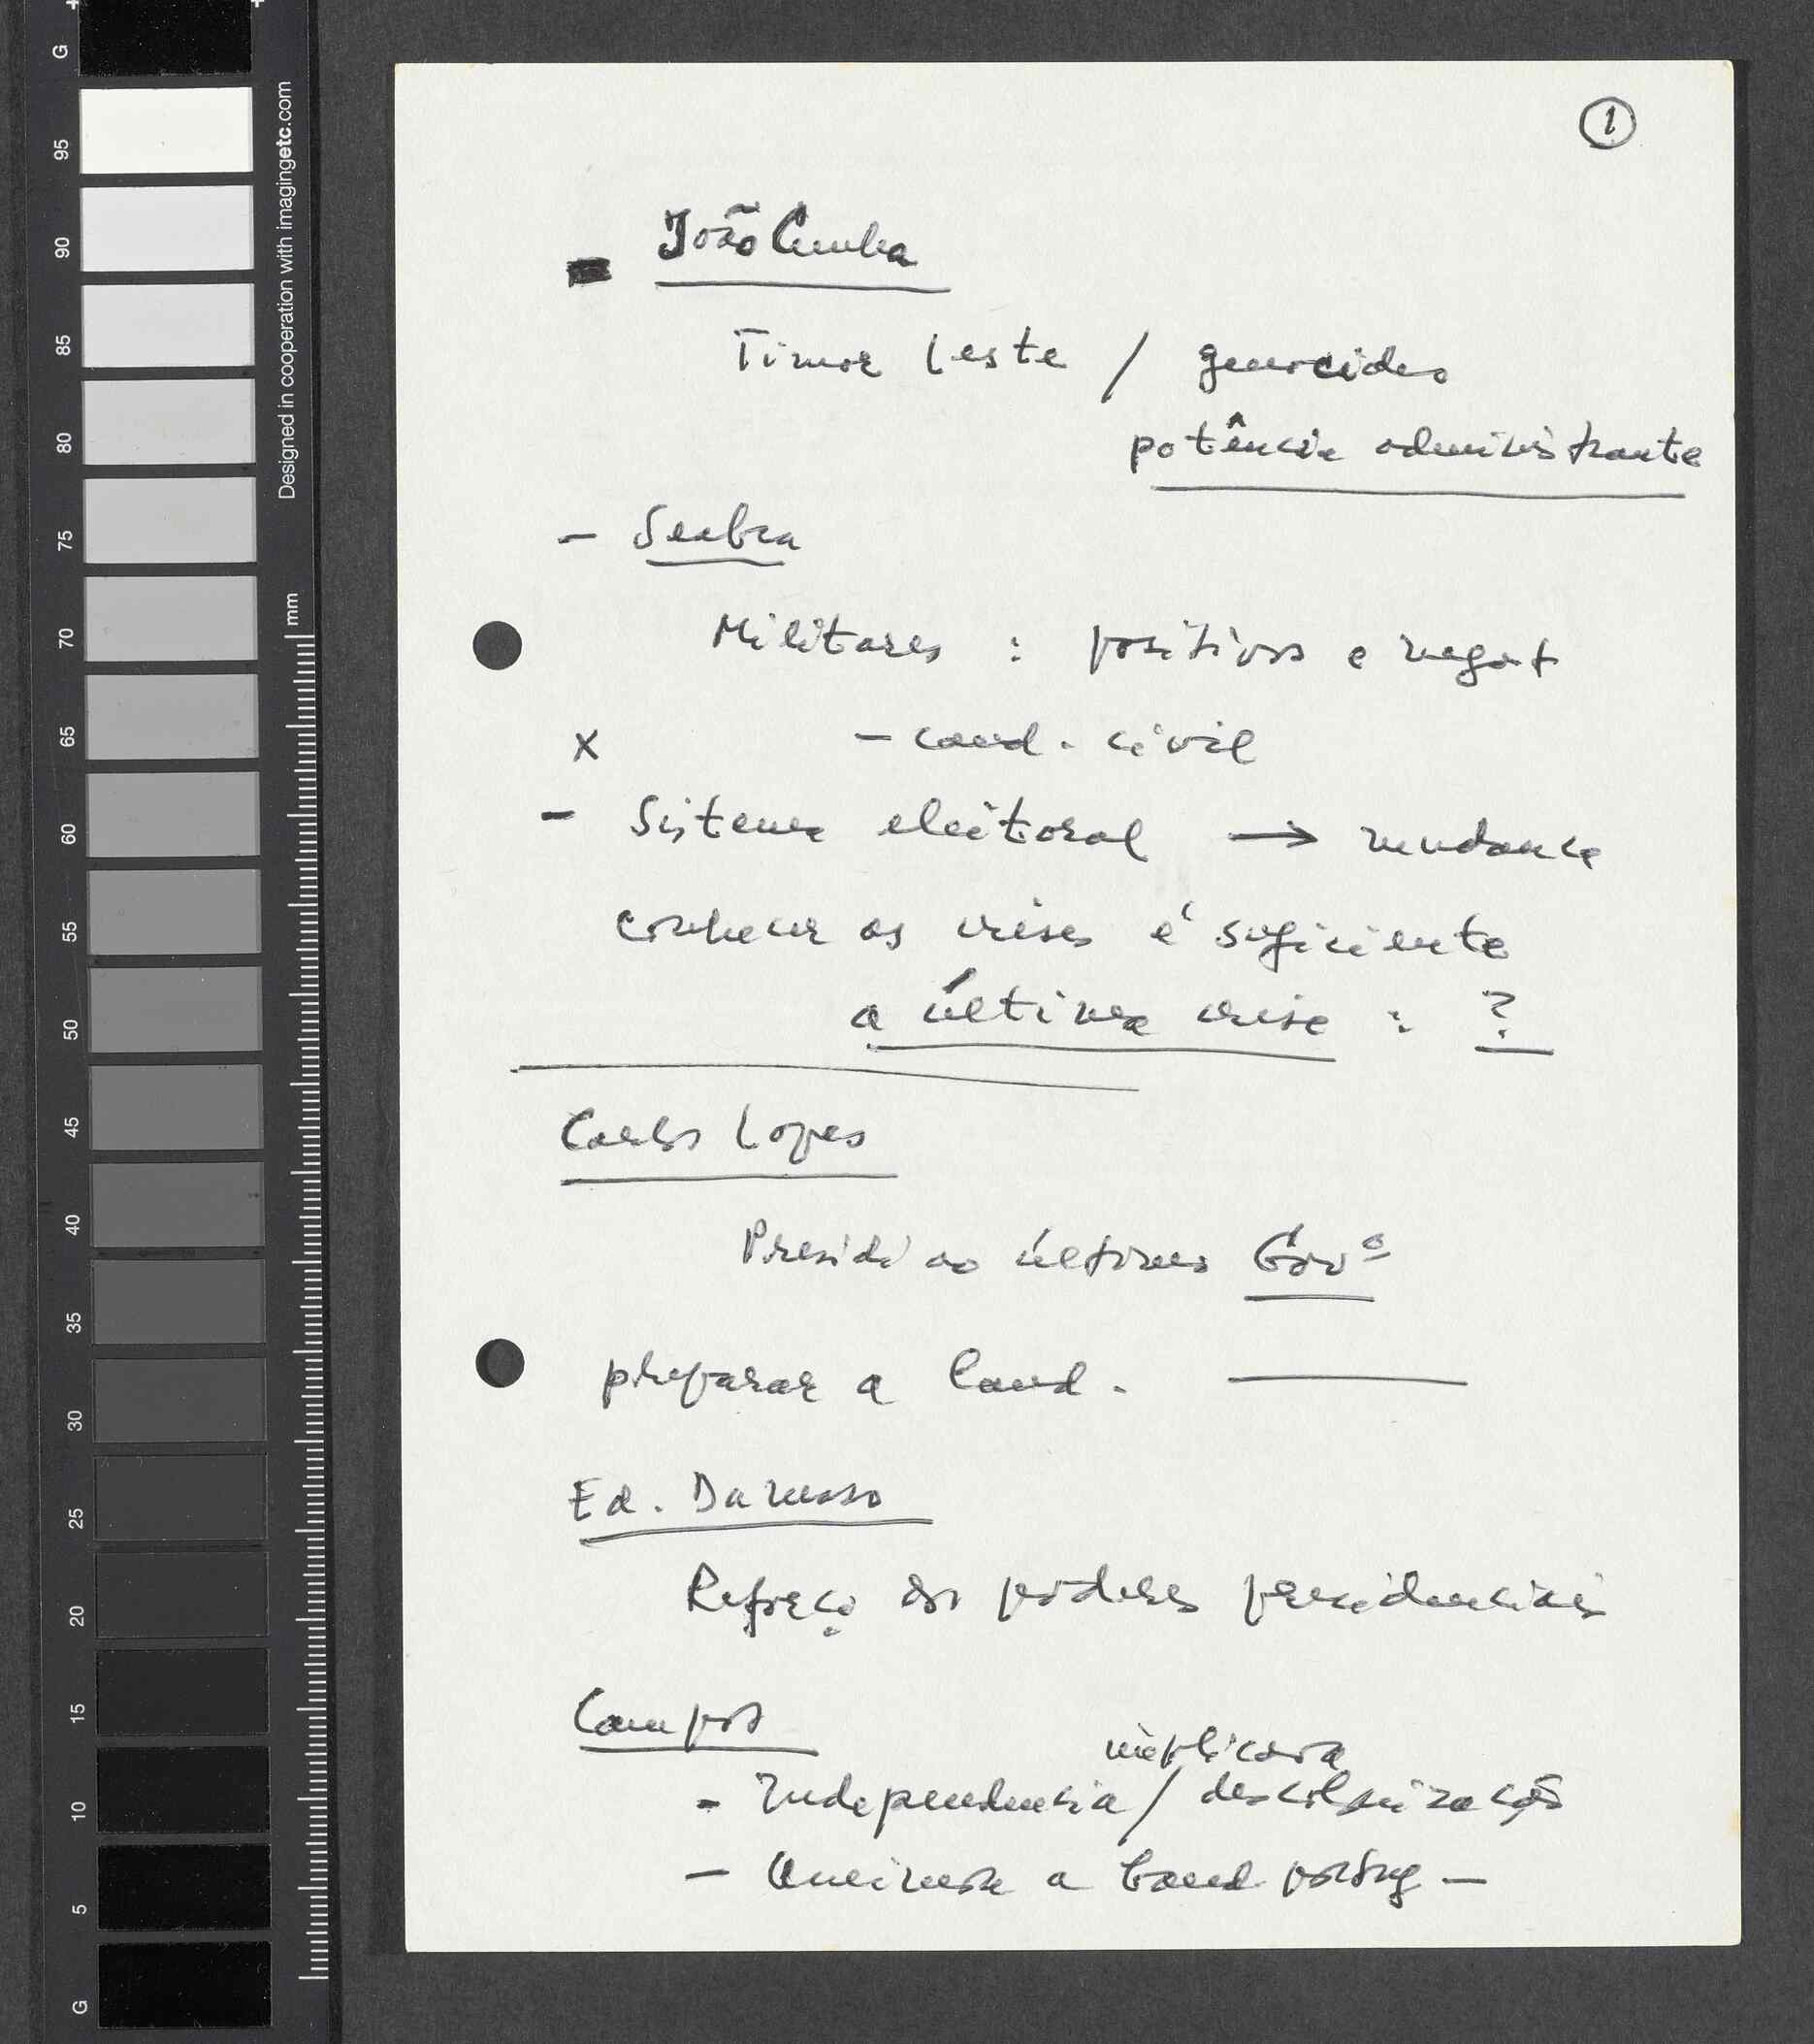 1
- João Cunha
Timor Leste / genocídeo
potência administrante
- Seabra
Militares : positivos e negat
x - cand. civil
- Sistema eleitoral → mudança
conhecer as crises é suficiente
a última crise : ?
Carlos Lopes
Presidi ao último Govº
preparar a Cand.
Ed. Damaso
Reforço dos poderes presidenciais
Campos
implicava
- Independencia / descolonização
- Queimava a Band. portug -
G
95
90
85
80
75
70
65
60
55
50
45
40
35
30
25
20
15
10
5
G
mm
Designed in cooperation with imagingetc.com